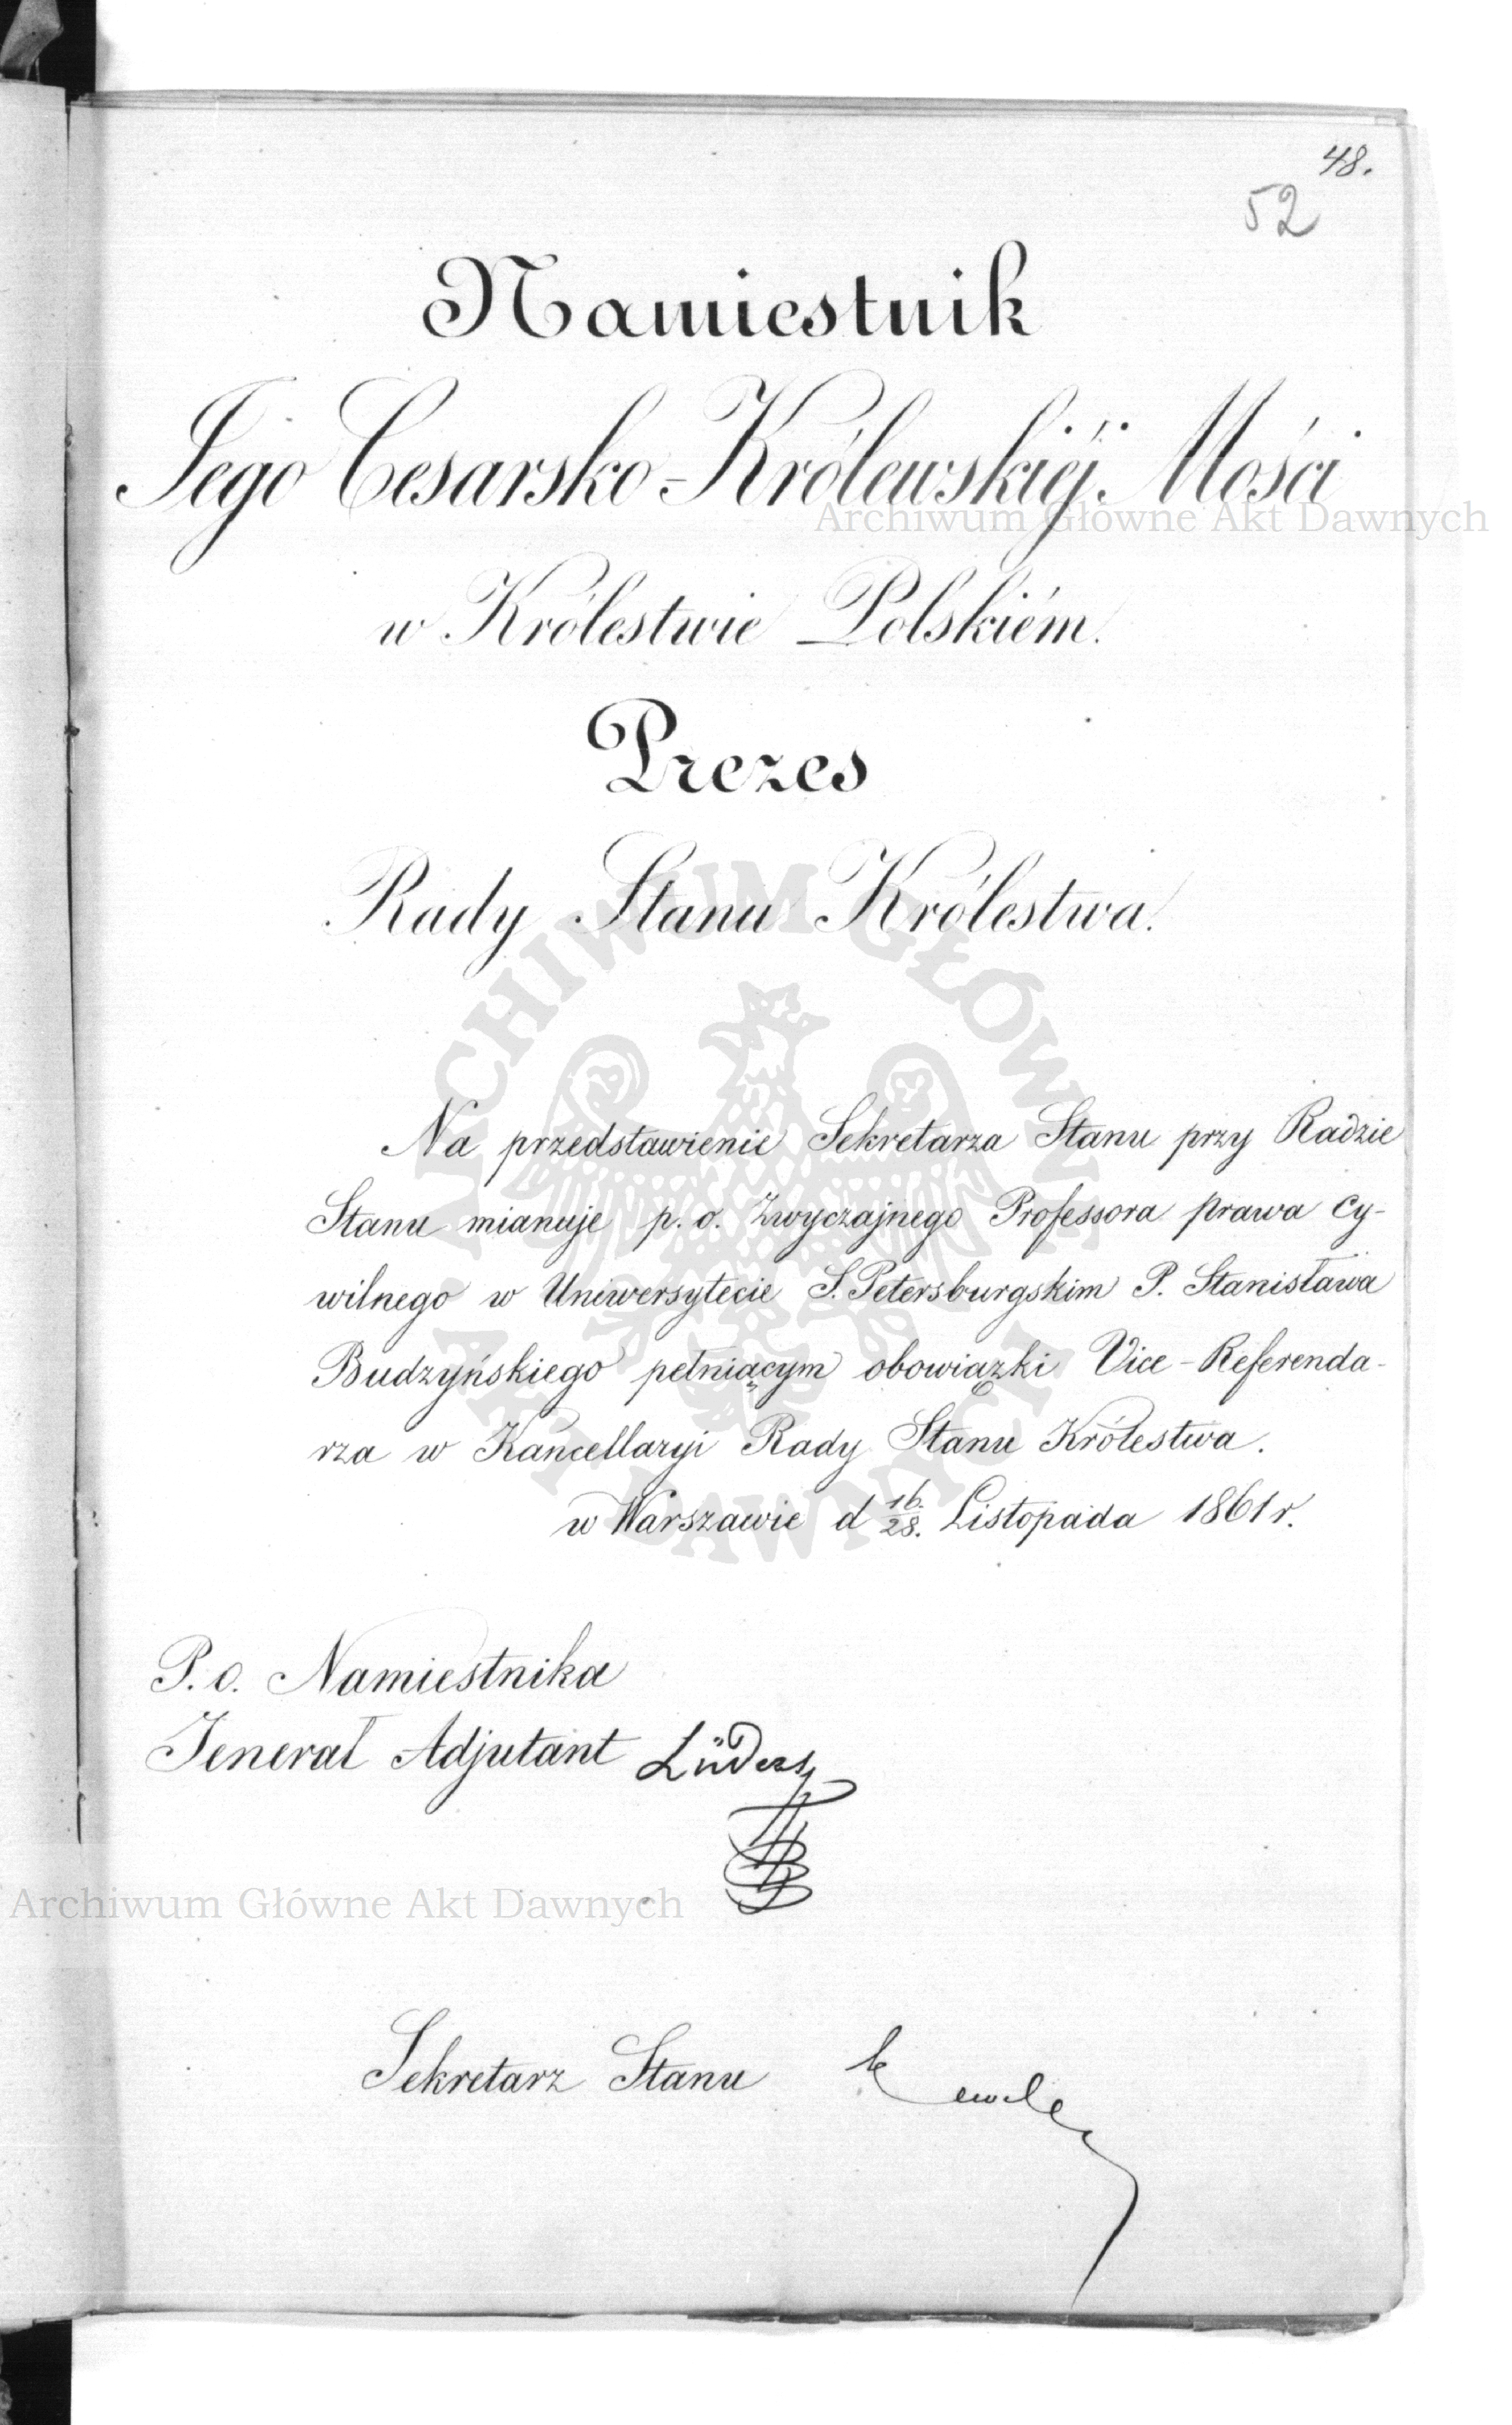 48.
52
Namiestnik
Jego Cesarsko-Królewskiéj Mości
w Królestwie Polskiém.
Prezes
Rady Stanu Królestwa.
Na przedstawienie Sekretarza Stanu przy Radzie
Stanu mianuje p. o. Zwyczajnego Professora prawa cy-
wilnego w Uniwersytecie S. Petersburgskim P. Stanisława
Budzyńskiego pełniącym obowiązki Vice-Referenda-
rza w Kancellaryi Rady Stanu Królestwa.
w Warszawie d 16./28. Listopada 1861 r.
P. o. Namiestnika
Jenerał Adjutant Lüders
Sekretarz Stanu
Archiwum Główne Akt Dawnych
Archiwum Główne Akt Dawnych
ARCHIWUM GŁÓWNE AKT DAWNYCH